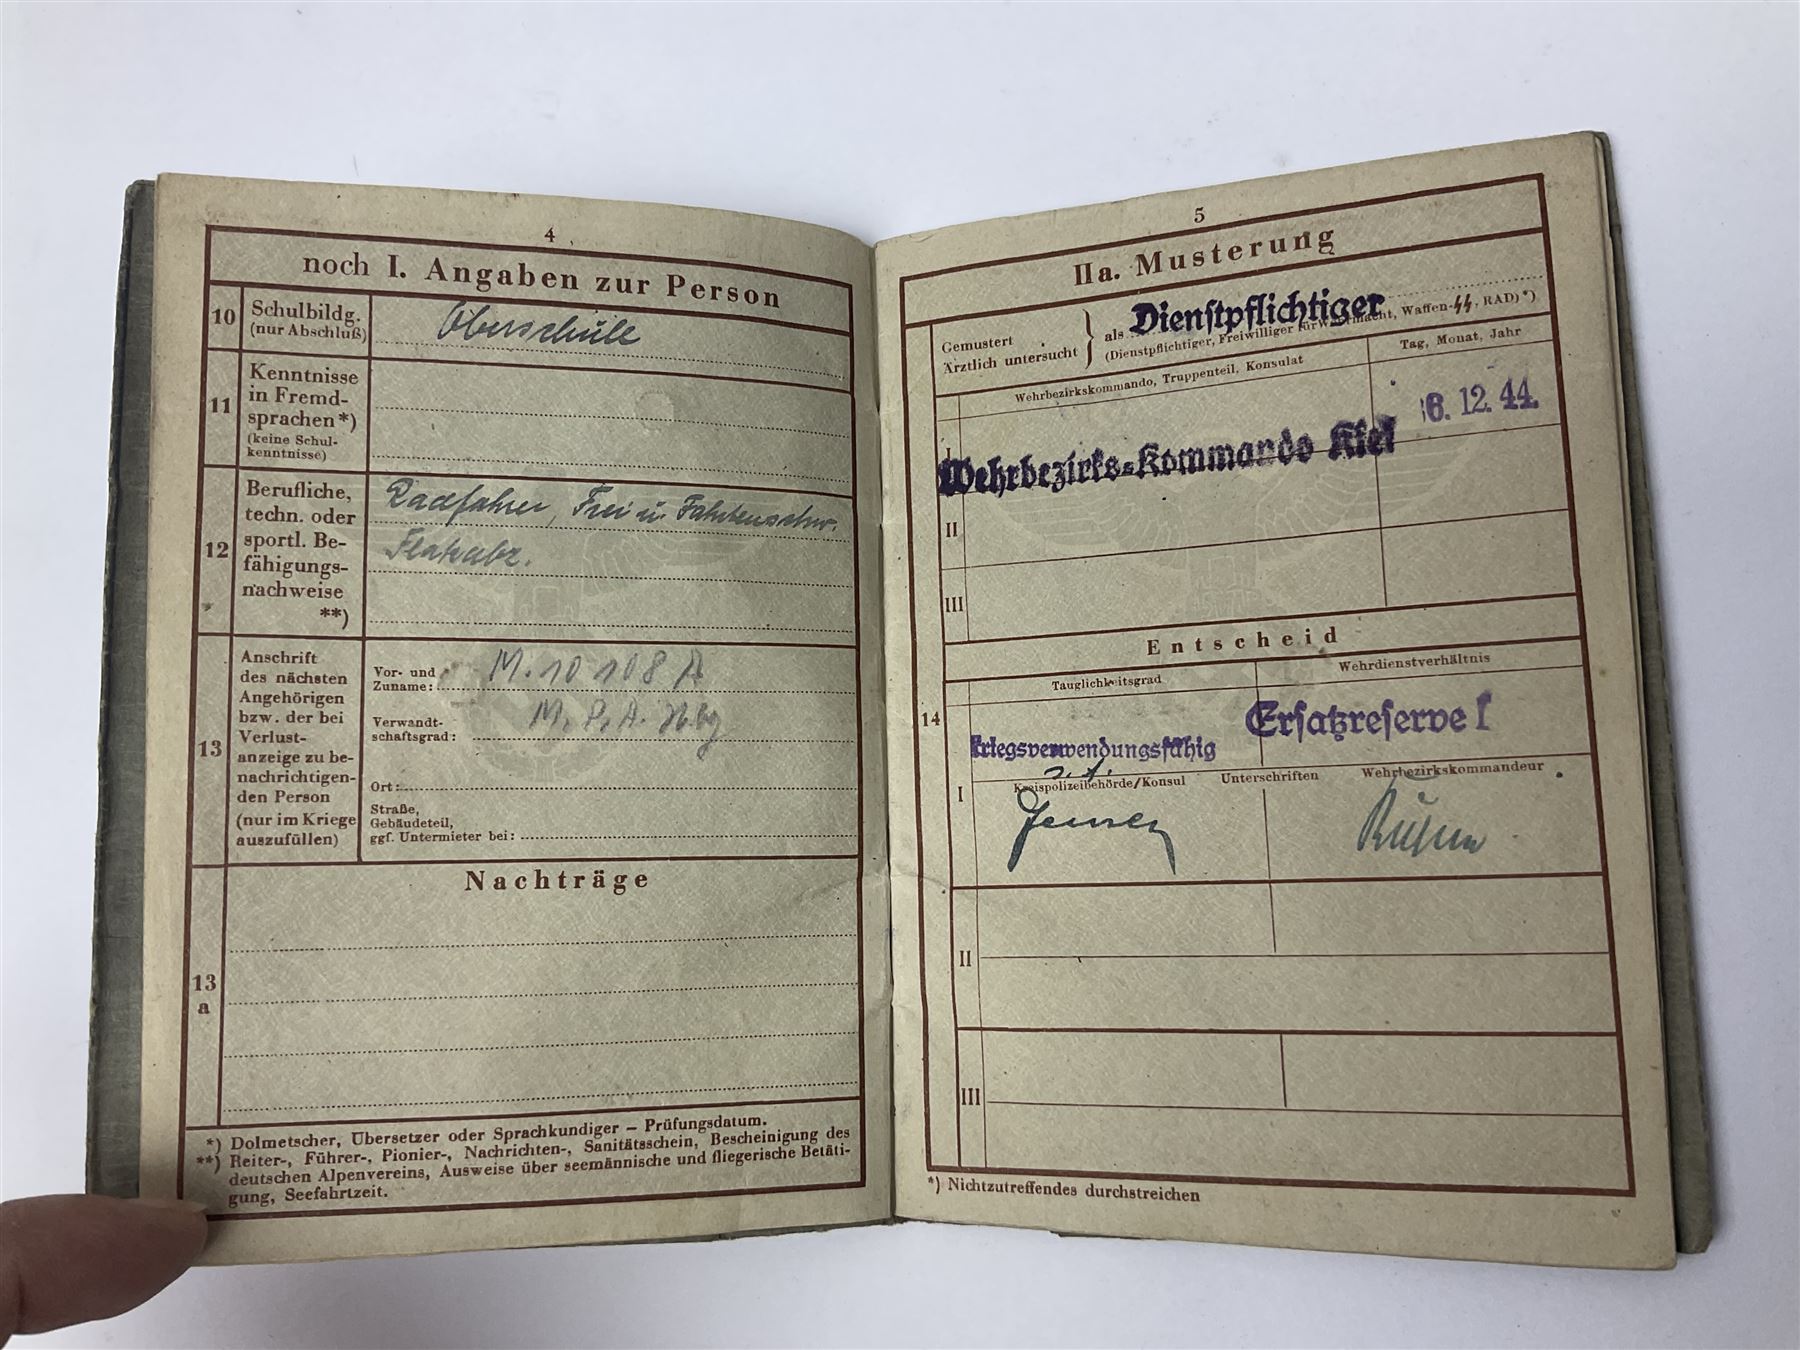 4
noch I. Angaben zur Person
10
Schulbildg.
(nur Abschluß)
Oberschule
11
Kenntnisse
in Fremd-
sprachen*)
(keine Schul-
kenntnisse)
12
Berufliche,
techn. oder
sportl. Be-
fähigungs-
nachweise
**)
Radfahrer, Frei u. Fahrtenschw.
Flakabz.
13
Anschrift
des nächsten
Angehörigen
bzw. der bei
Verlust-
anzeige zu be-
nachrichtigen-
den Person
(nur im Kriege
auszufüllen)
Vor- und
Zuname:
M. 10 108 A
Verwandt-
schaftsgrad:
M. P. A.
Ort:
Straße,
Gebäudeteil,
ggf. Untermieter bei:
Nachträge
13
a
*) Dolmetscher, Übersetzer oder Sprachkundiger – Prüfungsdatum.
**) Reiter-, Führer-, Pionier-, Nachrichten-, Sanitätsschein, Bescheinigung des
deutschen Alpenvereins, Ausweise über seemännische und fliegerische Betäti-
gung, Seefahrtzeit.
5
IIa. Musterung
Gemustert
Ärztlich untersucht
als Dienstpflichtiger
(Dienstpflichtiger, Freiwilliger für Wehrmacht, Waffen-SS, RAD)*)
Wehrbezirkskommando, Truppenteil, Konsulat
Tag, Monat, Jahr
I
Wehrbezirks-Kommando Kiel
6. 12. 44.
II
III
Entscheid
14
Tauglichkeitsgrad
Wehrdienstverhältnis
kriegsverwendungsfähig
Ersatzreserve I
Kreispolizeibehörde/Konsul
Unterschriften
Wehrbezirkskommandeur
I
Jensen
II
III
*) Nichtzutreffendes durchstreichen